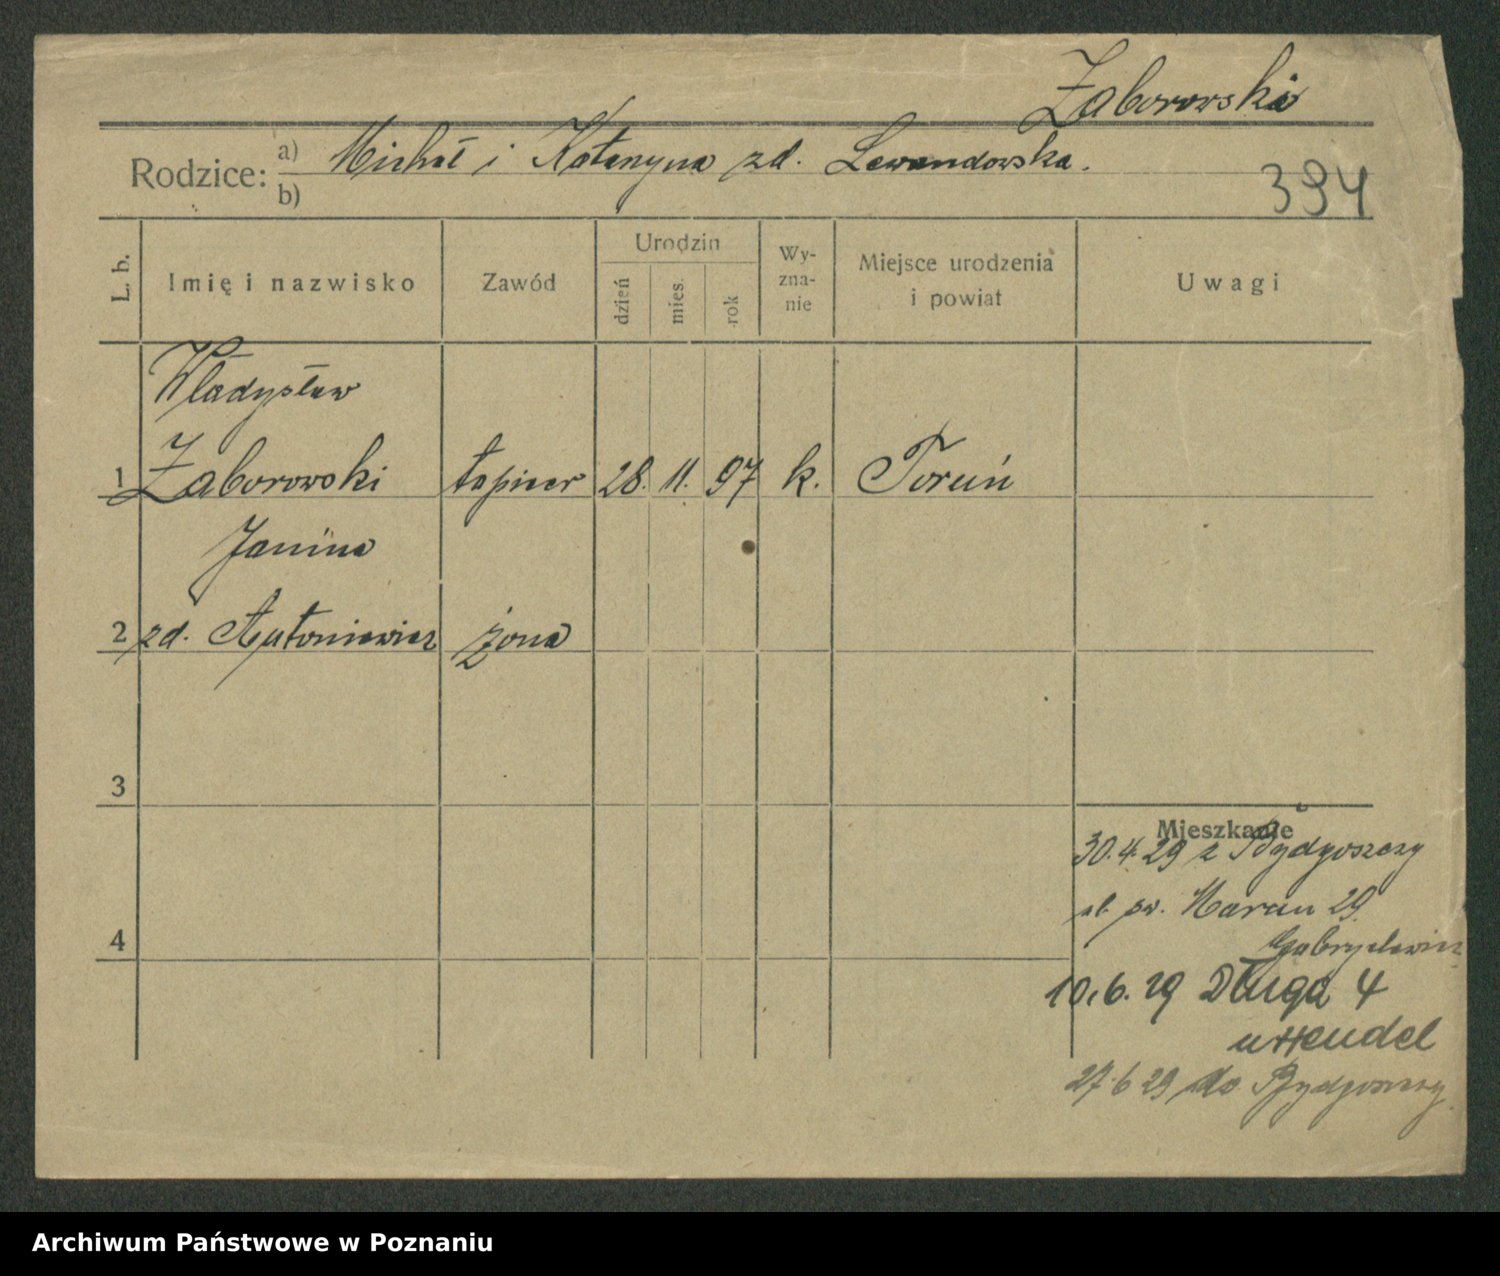 Zaborowski
Rodzice: a) Michał i Katarzyna zd. Lewandowska.
b)
394
L. b.
Imię i nazwisko
Zawód
Urodzin
dzień
mies.
rok
Wy-
zna-
nie
Miejsce urodzenia
i powiat
Uwagi
Władysław
1 Zaborowski tapicer 28. 11. 97 k. Toruń
Janina
2 zd. Antoniewicz żona
3
Mieszkanie
30.4.29 z Bydgoszczy
św. Marcin 29
4
Gabryelewicz
10.6.29 Długa 4
u Hendel
27.6 29 do Bydgoszczy
Archiwum Państwowe w Poznaniu